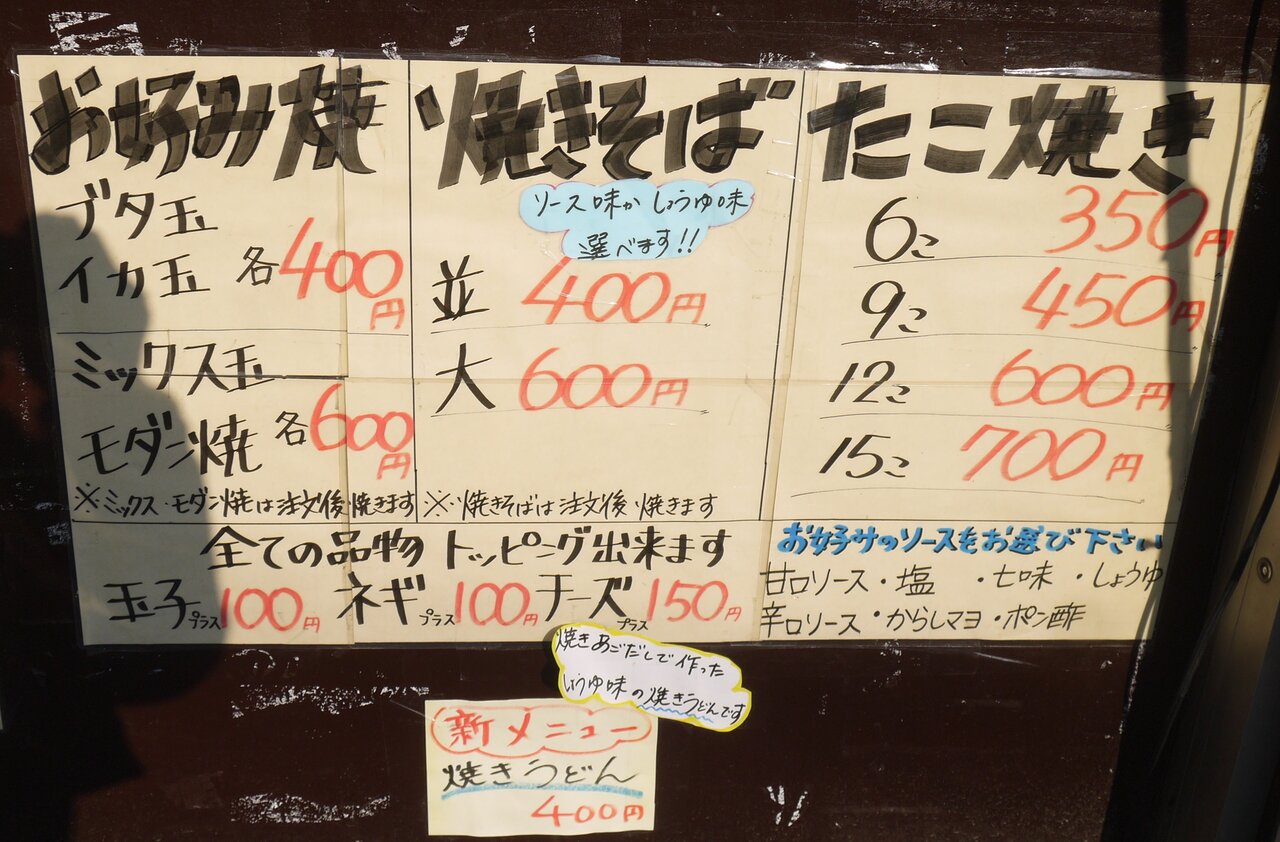 お好み焼
ブタ玉
イカ玉 各400円
ミックス玉
モダン焼 各600円
※ミックス・モダン焼は注文後焼きます
焼きそば
ソース味かしょうゆ味
選べます!!
並 400円
大 600円
※焼きそばは注文後焼きます
たこ焼き
6こ 350円
9こ 450円
12こ 600円
15こ 700円
全ての品物トッピング出来ます
玉子プラス100円 ネギプラス100円 チーズプラス150円
お好みのソースをお選び下さい
甘口ソース・塩・七味・しょうゆ
辛口ソース・からしマヨ・ポン酢
焼きあごだしで作った
しょうゆ味の焼きうどんです
新メニュー
焼きうどん
400円